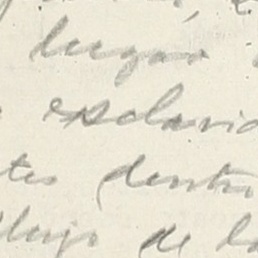 lugar
esclavi
tes dentro
lujo de la